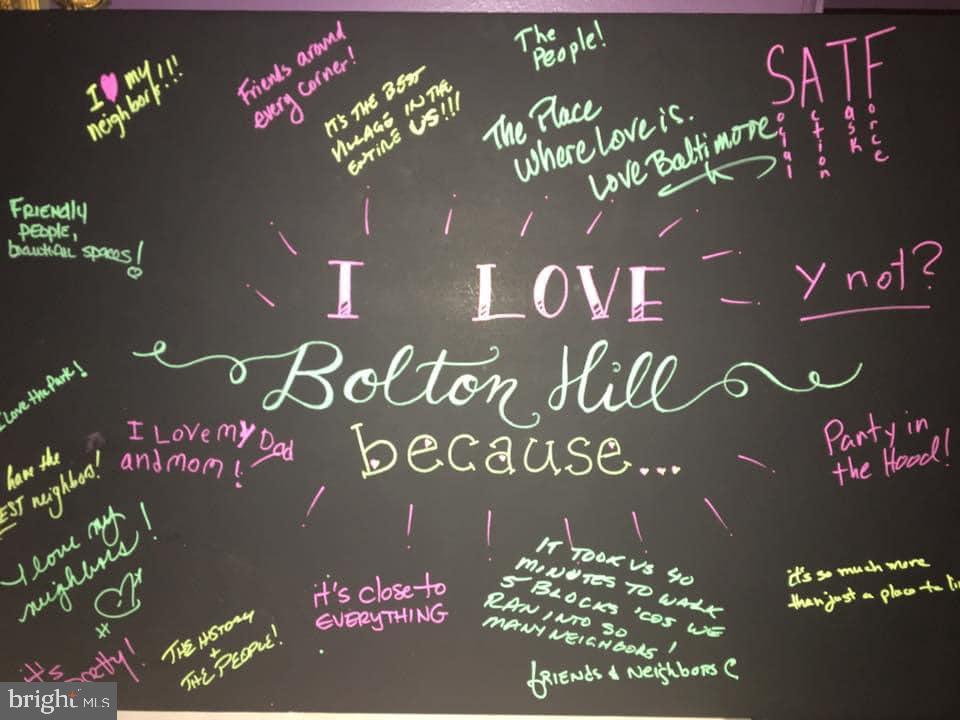 I ♥ my
neighbors!!!
Friends around
every corner!
IT'S THE BEST
VILLAGE IN THE
ENTIRE US!!!
The
People!
The Place
Where Love is.
Love Baltimore
SATF
Social Action Task Force
FRIENDLY
PEOPLE,
beautiful spaces!
Y not?
I LOVE
Bolton Hill
because...
I Love the Park!
I Love my Dad
and mom!
have the
BEST neighbors!
I love my
neighbors!
Party in
the Hood!
it's so much more
than just a place to
it's close to
EVERYTHING
.
IT TOOK US 40
MINUTES TO WALK
5 BLOCKS 'COS WE
RAN INTO SO
MANY NEIGHBORS!
friends & Neighbors
THE HISTORY
+
THE PEOPLE!
it's
pretty!
bright MLS